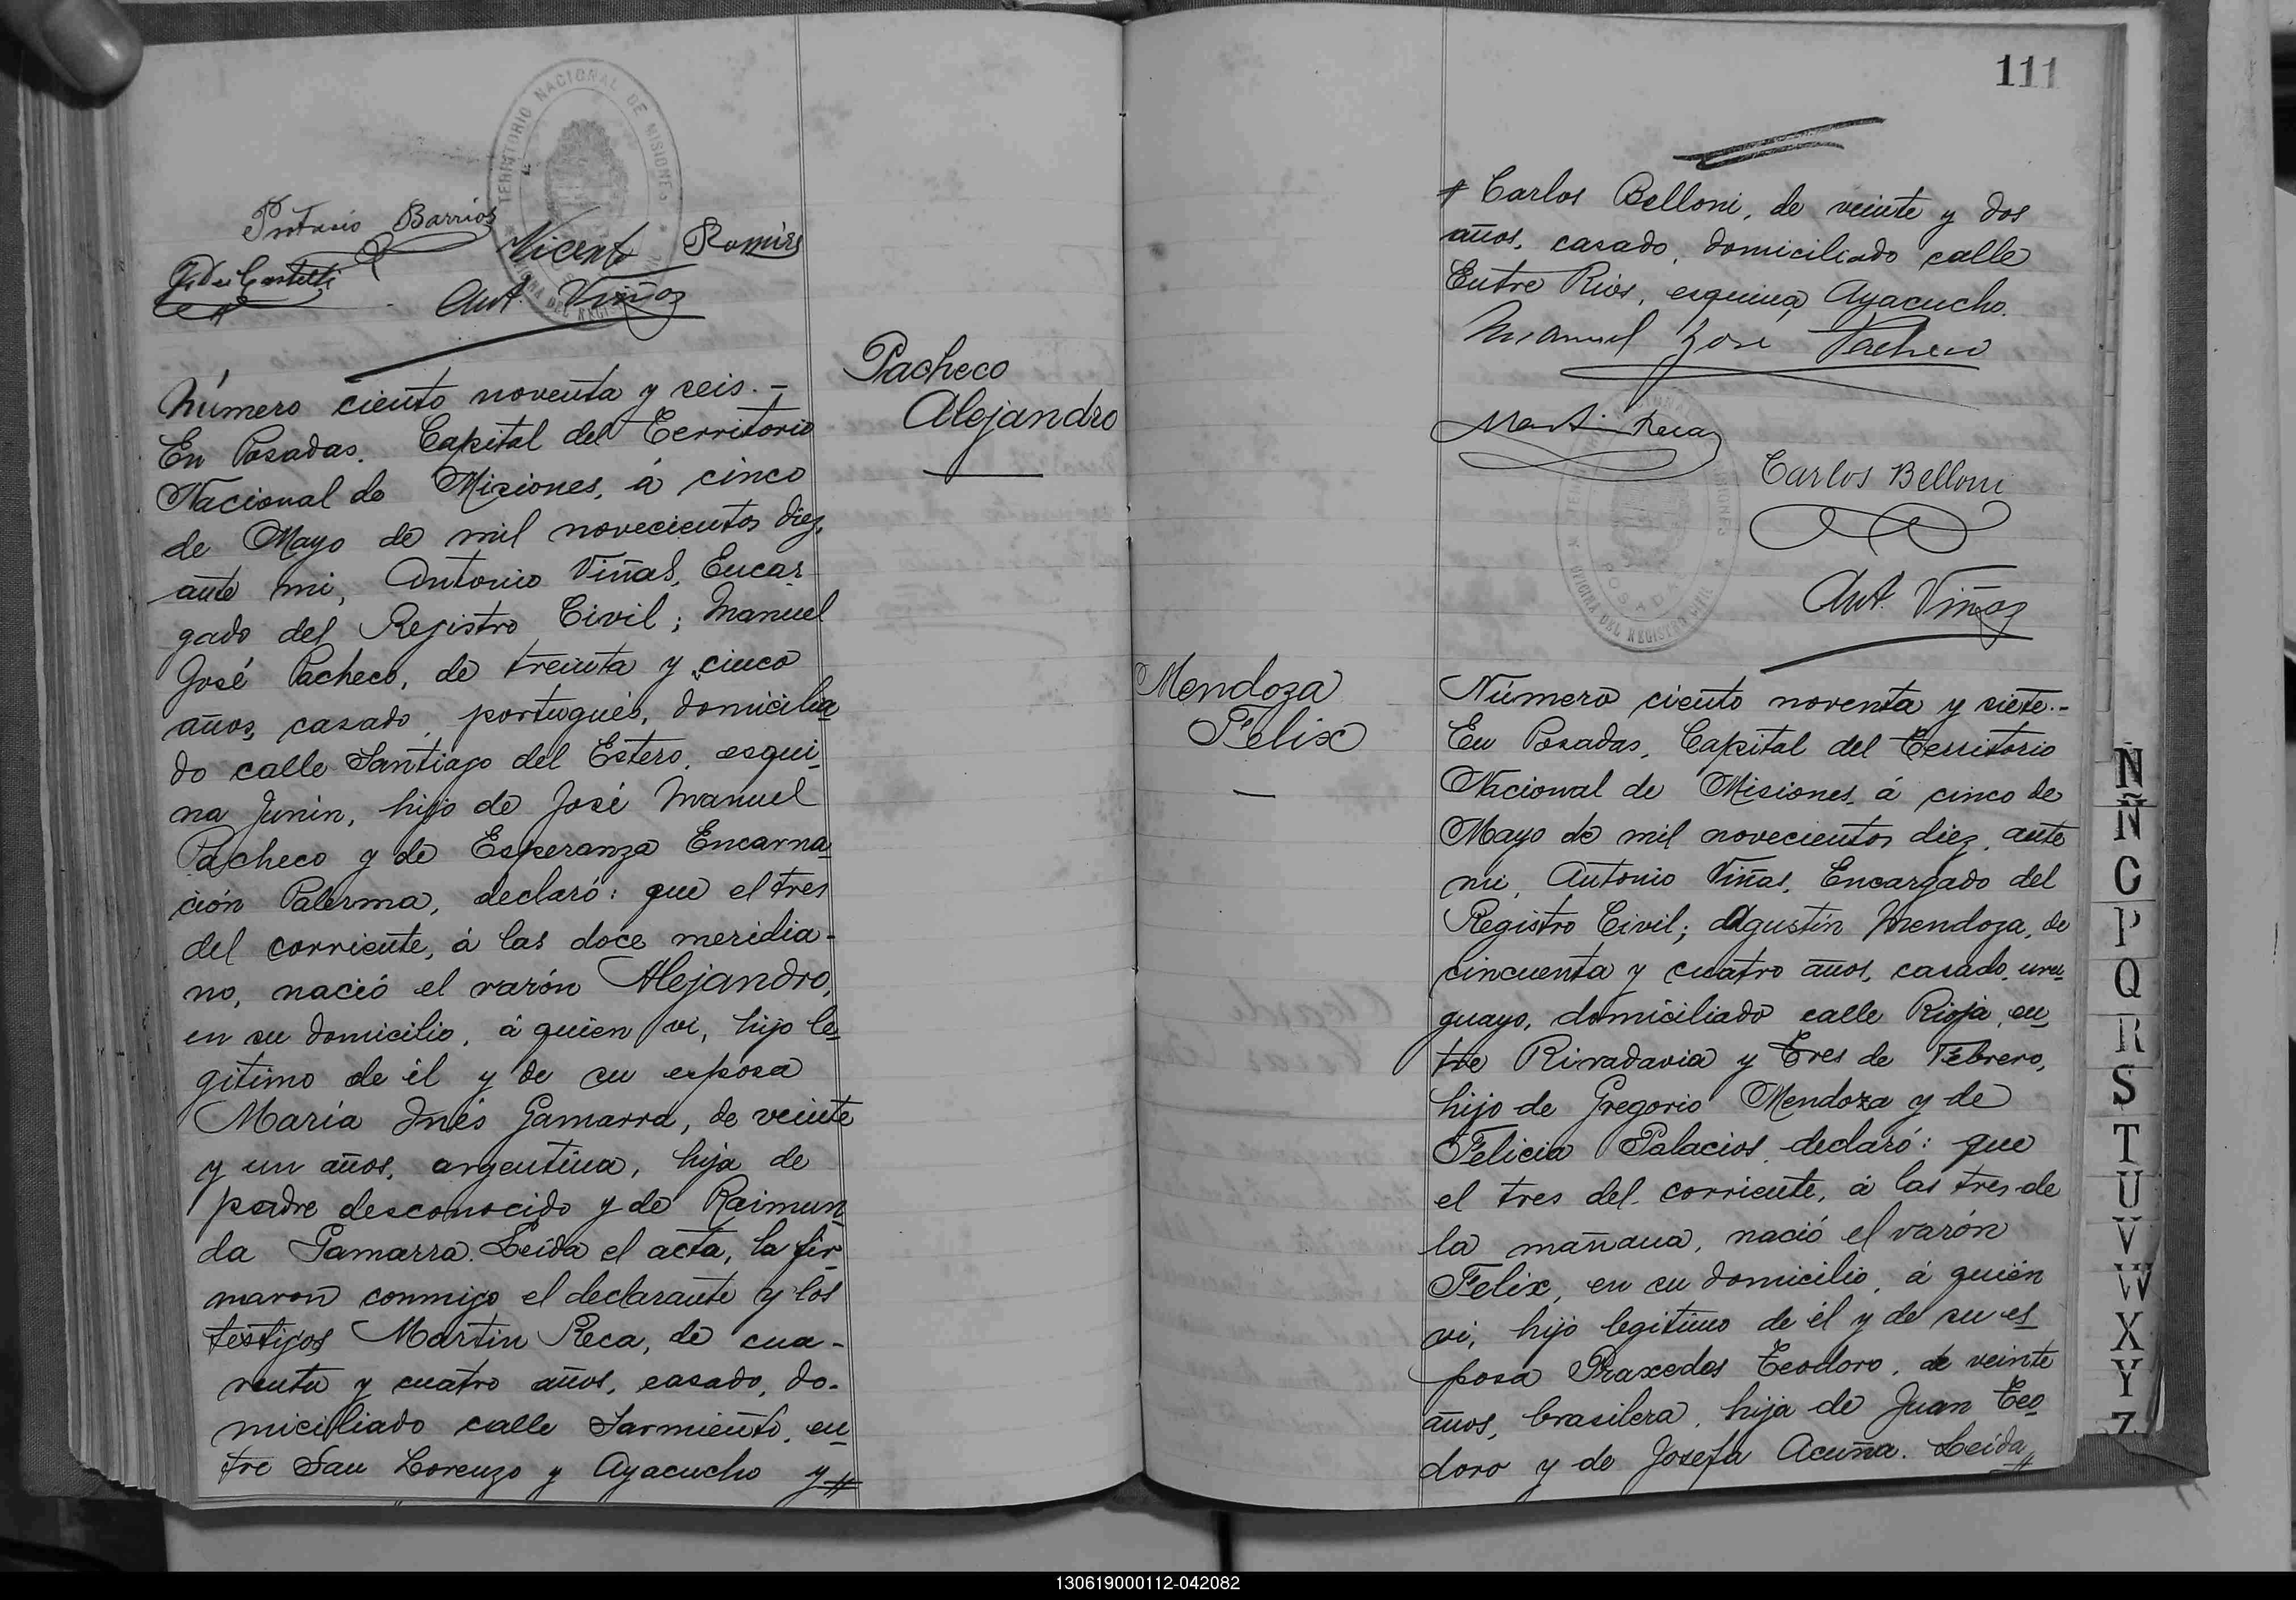 TERRITORIO NACIONAL DE MISIONES
OFICINA DEL REGISTRO CIVIL
Protasio Barrios
Vicente Ramirs
Ant. Viñas
Número ciento noventa y seis.-
En Posadas. Capital del Territorio
Nacional de Misiones, á cinco
de Mayo de mil novecientos diez,
ante mi, Antonio Viñas, Encar
gado del Registro Civil; Manuel
José Pacheco, de treinta y cinco
años, casado, portugués, domicilia
do calle Santiago del Estero, esqui
na Junin, hijo de José Manuel
Pacheco y de Esperanza Encarna
ción Palerma, declaró: que el tres
del corriente, á las doce meridia-
no, nació el varón Alejandro,
en su domicilio, á quien vi, hijo le
gitimo de él y de su esposa
María Inés Gamarra, de veinte
y un años, argentina, hija de
padre desconocido y de Raimun
da Gamarra. Leida el acta, la fir
maron conmigo el declarante y los
testigos Martin Reca, de cua-
renta y cuatro años, casado, do-
miciliado calle Sarmiento, en
tre San Lorenzo y Ayacucho y #
Pacheco
Alejandro
111
# Carlos Belloni, de veinte y dos
años, casado, domiciliado calle
Entre Rios, esquina Ayacucho.
Manuel José Pacheco
Martin Reca
Carlos Belloni
POSADAS
OFICINA DEL REGISTRO CIVIL
Ant. Viñas
Mendoza
Felix
Número ciento noventa y siete.-
En Posadas, Capital del Territorio
Nacional de Misiones, á cinco de
Mayo de mil novecientos diez, ante
mi, Antonio Viñas, Encargado del
Registro Civil; Agustín Mendoza, de
cincuenta y cuatro años, casado, uru
guayo, domiciliado calle Rioja, en
tre Rivadavia y Tres de Febrero,
hijo de Gregorio Mendoza y de
Felicia Palacios, declaró: que
el tres del corriente, á las tres de
la mañana, nació el varón
Felix, en su domicilio, á quién
vi, hijo legitimo de él y de su es
posa Praxedes Teodoro, de veinte
años, brasilera, hija de Juan Teo
doro y de Josefa Acuña. Leida #
N
Ñ
O
P
Q
R
S
T
U
V
W
X
Y
Z
130619000112-042082